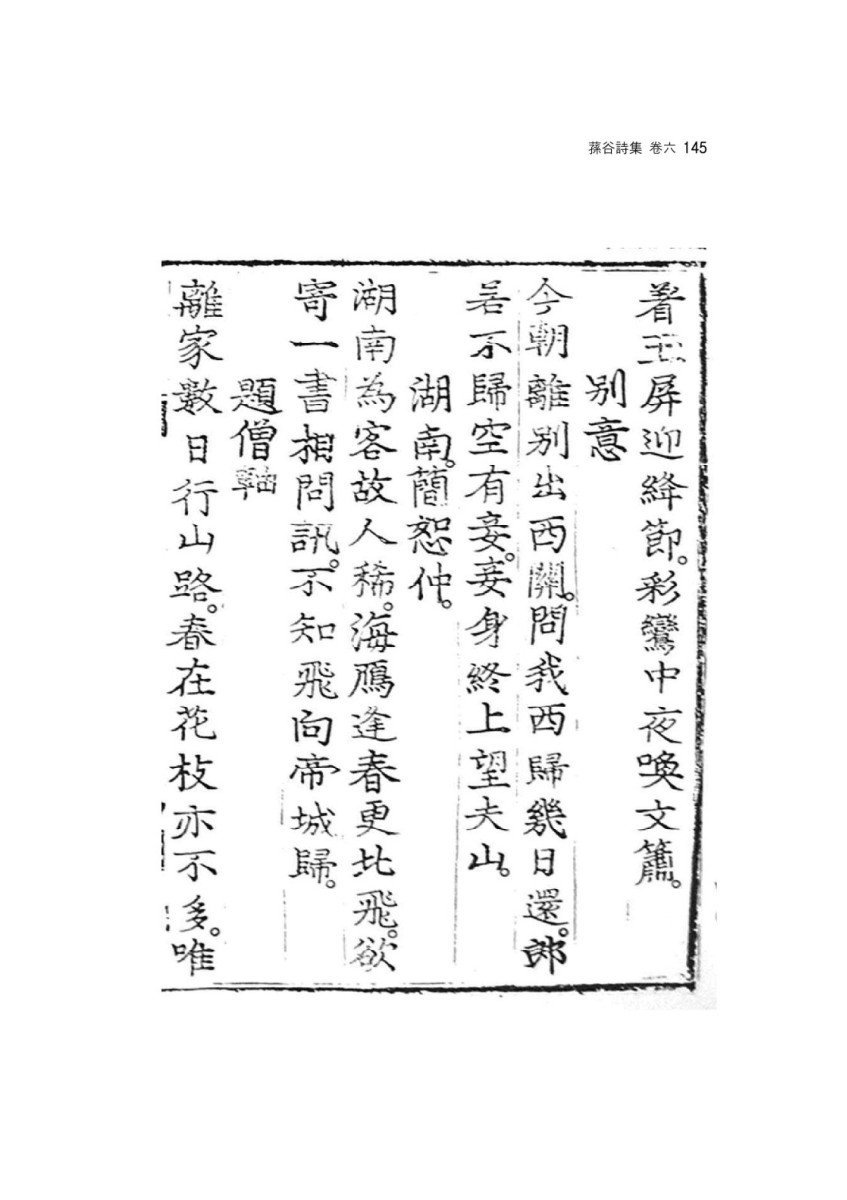 蓀谷詩集 卷六 145
着玉屛迎絳節。彩鸞中夜喚文簫。
別意
今朝離別出西關。問我西歸幾日還。郞
若不歸空有妾。妾身終上望夫山。
湖南。簡恕仲。
湖南為客故人稀。海鴈逢春更北飛。欲
寄一書相問訊。不知飛向帝城歸。
題僧軸
離家數日行山路。春在花枝亦不多。唯